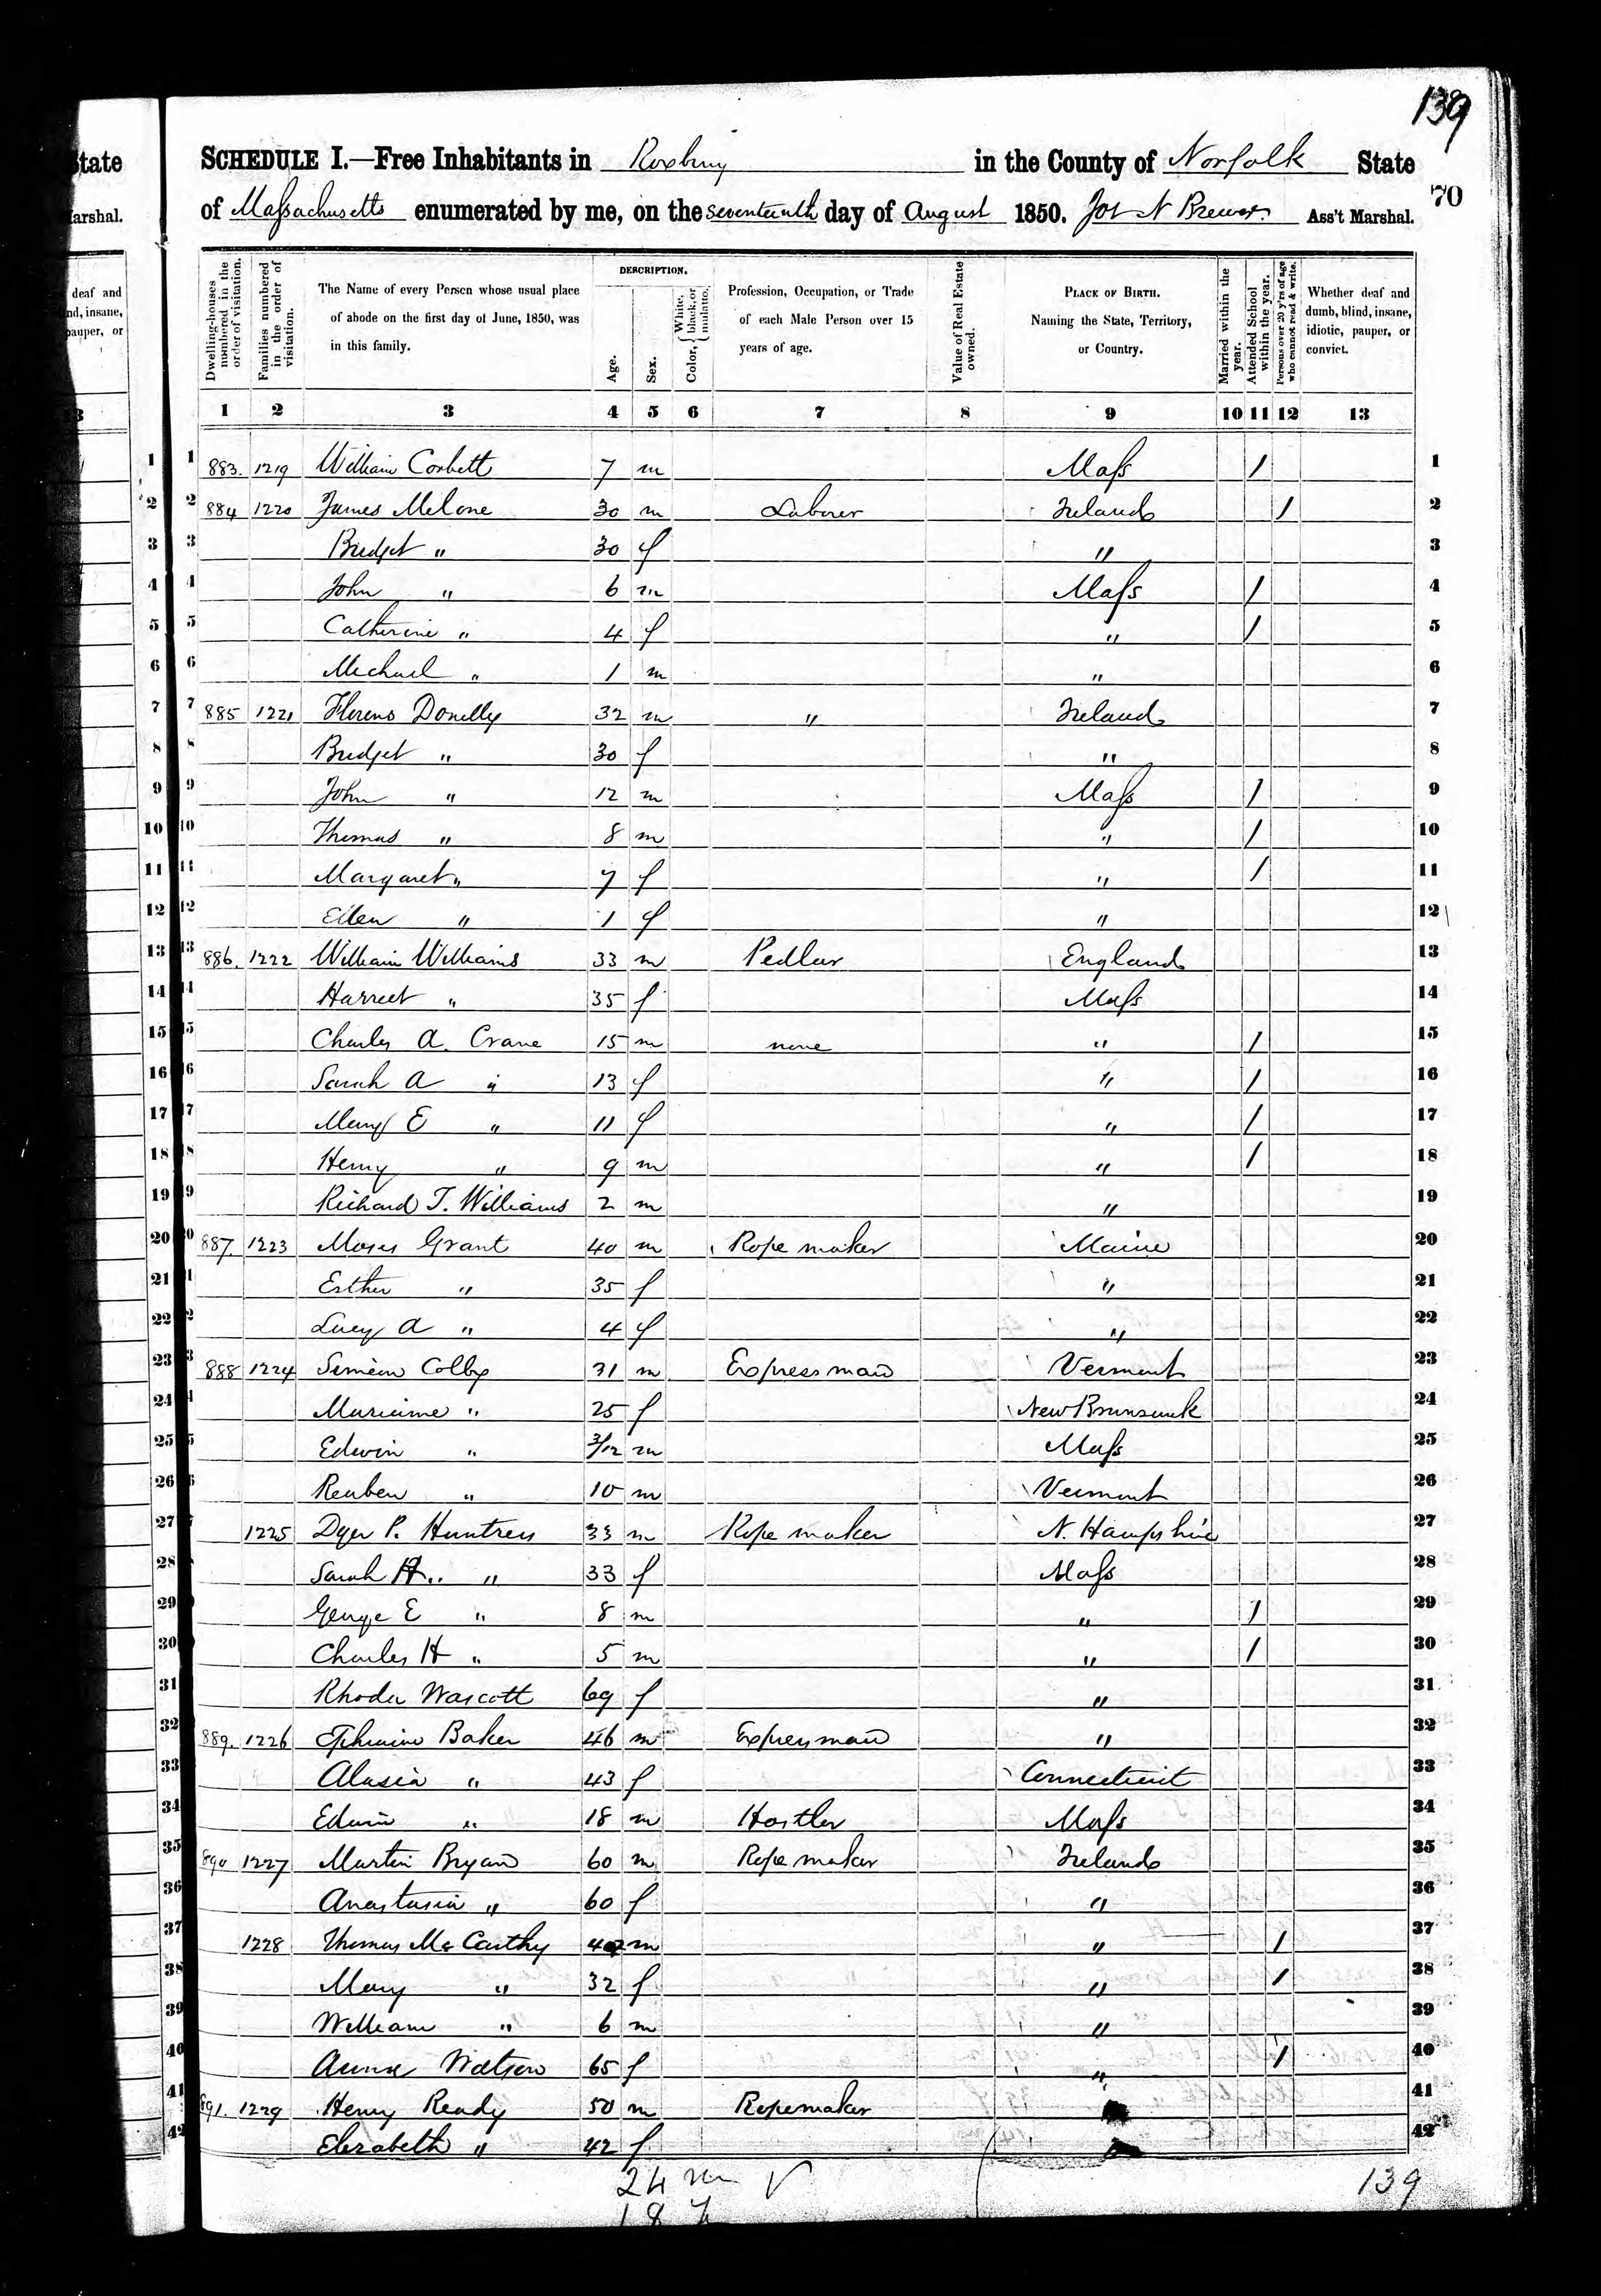 139
SCHEDULE I.—Free Inhabitants in Roxbury in the County of Norfolk State
of Massachusetts enumerated by me, on the seventeenth day of August 1850. Jos N Brewer Ass't Marshal.
70
State
Marshal.
deaf and
nd, insane,
pauper, or
Dwelling-houses numbered in the order of visitation.
Families numbered in the order of visitation.
The Name of every Person whose usual place of abode on the first day of June, 1850, was in this family.
DESCRIPTION.
Age.
Sex.
Color, { White, black, or mulatto.
Profession, Occupation, or Trade of each Male Person over 15 years of age.
Value of Real Estate owned.
PLACE OF BIRTH. Naming the State, Territory, or Country.
Married within the year.
Attended School within the year.
Persons over 20 y'rs of age who cannot read & write.
Whether deaf and dumb, blind, insane, idiotic, pauper, or convict.
1 2 3 4 5 6 7 8 9 10 11 12 13
1 883. 1219 William Corbett 7 m Mass / 1
2 884 1220 James Melone 30 m Laborer Ireland / 2
3 Bridget " 30 f " 3
4 John " 6 m Mass / 4
5 Catherine " 4 f " / 5
6 Michael " 1 m " 6
7 885 1221 Florens Donelly 32 m " Ireland 7
8 Bridget " 30 f " 8
9 John " 12 m Mass / 9
10 Thomas " 8 m " / 10
11 Margaret " 7 f " / 11
12 Ellen " 1 f " 12
13 886. 1222 William Williams 33 m Pedler England 13
14 Harriet " 35 f Mass 14
15 Charles A. Crane 15 m none " / 15
16 Sarah A " 13 f " / 16
17 Mary E " 11 f " / 17
18 Henry " 9 m " / 18
19 Richard T. Williams 2 m " 19
20 887. 1223 Moses Grant 40 m Rope maker Maine 20
21 Esther " 35 f " 21
22 Lucy A " 4 f " 22
23 888 1224 Simeon Colby 31 m Expressman Vermont 23
24 Mariame " 25 f New Brunswick 24
25 Edwin " 3/12 m Mass 25
26 Reuben " 10 m Vermont 26
27 1225 Dyer P. Huntress 33 m Rope maker N. Hampshire 27
28 Sarah H.. " 33 f Mass 28
29 George E " 8 m " / 29
30 Charles H " 5 m " / 30
31 Rhoda Wascott 69 f " 31
32 889. 1226 Ephraim Baker 46 m Expressman " 32
33 Alasia " 43 f Connecticut 33
34 Edwin " 18 m Hostler Mass 34
35 890 1227 Martin Bryan 60 m Rope maker Ireland 35
36 Anastasia " 60 f " 36
37 1228 Thomas McCarthy m " / 37
38 Mary " 32 f " / 38
39 William " 6 m " 39
40 Anna Watson 65 f " / 40
41 891. 1229 Henry Ready 50 m Ropemaker 41
42 Elizabeth " 42 f 42
24 m
18 f
139